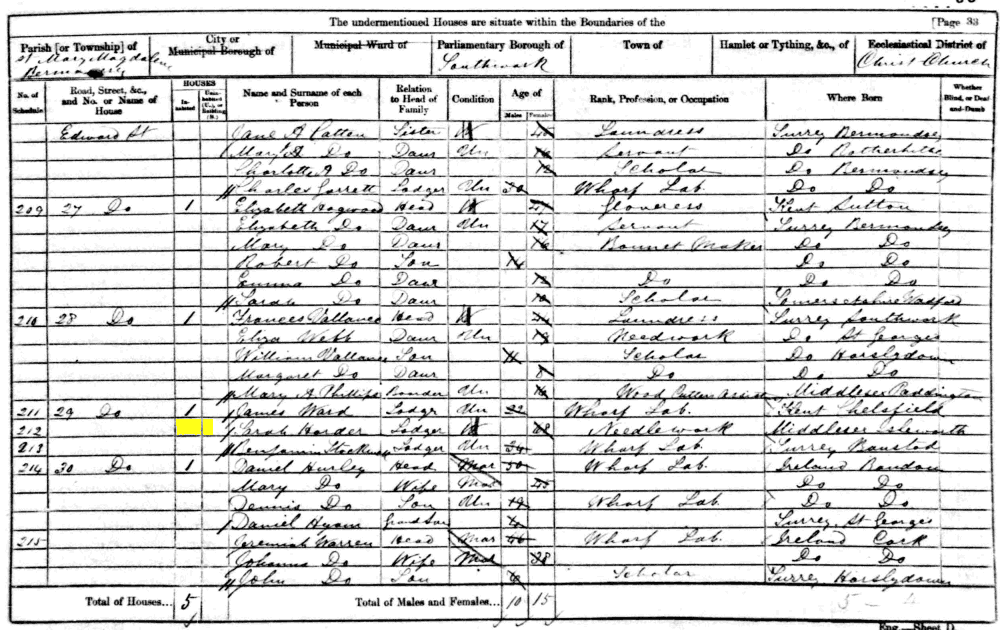 The undermentioned Houses are situate within the Boundaries of the
[Page 33
Parish [or Township] of
St Mary Magdalen
Bermondsey
City or
Municipal Borough of
Municipal Ward of
Parliamentary Borough of
Southwark
Town of
Hamlet or Tything, &c., of
Ecclesiastical District of
Christ Church
No. of Schedule
Road, Street, &c., and No. or Name of House
HOUSES
In-habited
Unin-habited (U.), or Building (B.)
Name and Surname of each Person
Relation to Head of Family
Condition
Age of
Males
Females
Rank, Profession, or Occupation
Where Born
Whether Blind, or Deaf-and-Dumb
Edward St Jane A Patton Sister W Laundress Surrey Bermondsey
Mary A Do Daur Un Servant Do Rotherhithe
Charlotte A Do Daur Scholar Do Bermondsey
Charles Garrett Lodger Un 30 Wharf Lab. Do Do
209 27 Do 1 Elizabeth Head W Kent Sutton
Elizabeth Do Daur Un 17 Servant Surrey Bermondsey
Mary Do Daur 16 Bonnet Maker Do Do
Robert Do Son 14 Do Do
Emma Do Daur Do Do Do
Sarah Do Daur Scholar Somersetshire
210 28 Do 1 Frances Vallance Head W Laundress Surrey Southwark
Eliza Webb Daur Un Needlework Do St Georges
William Vallance Son 11 Scholar Do Horslydown
Margaret Do Daur 8 Do Do Do
Mary A Phillips Un Wood Cutters Middlesex Paddington
211 29 Do 1 James Ward Lodgr Un 22 Wharf Lab. Kent Chelsfield
212 Sarah Harder Lodger W 68 Needlework Middlesex Isleworth
213 Benjamin Lodger Un Wharf Lab. Surrey Banstead
214 30 Do 1 Daniel Hurley Head Mar 50 Wharf Lab. Ireland Bandon
Mary Do Wife Mar 45 Do Do
Dennis Do Son Un 19 Wharf Lab. Do Do
Daniel Grandson Surrey, St Georges
215 Jeremiah Warren Head Mar Wharf Lab. Ireland Cork
Johanna Do Wife Mar 38 Do Do
John Do Son Scholar Surrey Horslydown
Total of Houses... 5
Total of Males and Females... 10 15
5 - 4
Eng.—Sheet D.